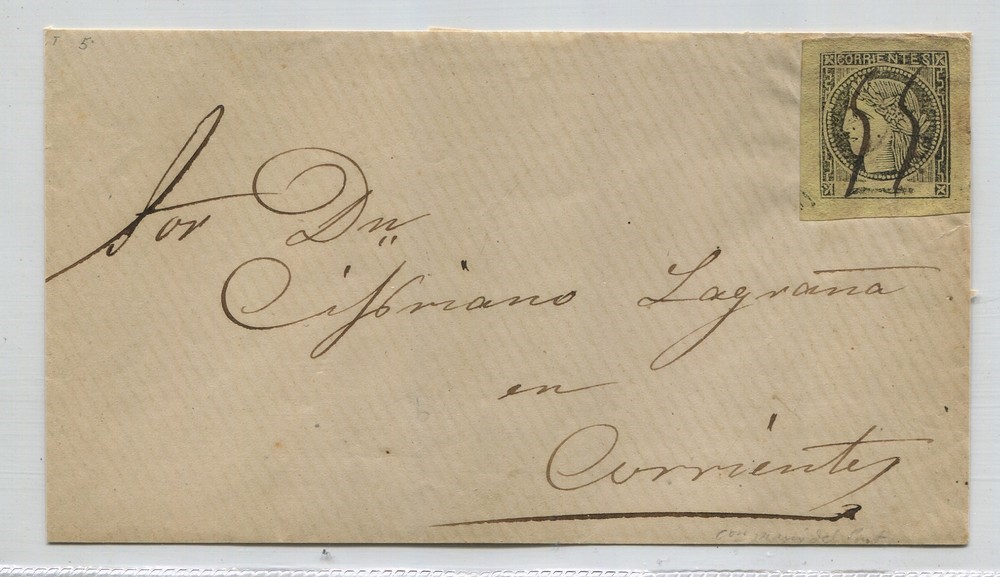 5
CORRIENTES
Sor Dn
Cipriano Lagraña
en
Corrientes